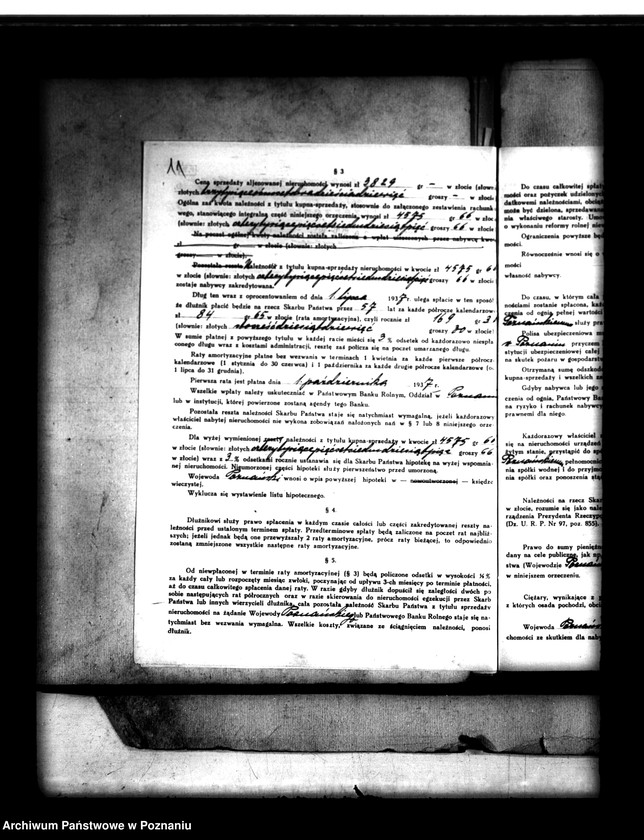 11
§ 3
Cena sprzedaży aljenowanej nieruchomości wynosi zł 3829 gr — w złocie (słow
złotych groszy — w złocie
Ogólna zaś kwota należności z tytułu kupna-sprzedaży, stosownie do załączonego zestawienia rachunk
wego, stanowiącego integralną część niniejszego orzeczenia, wynosi zł 4575 gr 66 w złoc
(słownie: złotych groszy 66 w złoc
zł gr w złocie (słownie: złotych
groszy w złocie).
Pozostała reszta należności z tytułu kupna-sprzedaży nieruchomości w kwocie zł 4575 gr 66
w złocie (słownie: złotych groszy 66
zostaje nabywcy zakredytowana.
Dług ten wraz z oprocentowaniem od dnia 1 lipca 1937 r. ulega spłacie w ten sposób
że dłużnik płacić będzie na rzecz Skarbu Państwa przez 57 lat za każde półrocze kalendarzow
zł 84 gr 65 w złocie (rata amortyzacyjna), czyli rocznie zł 169 gr 30
(słownie: złotych groszy w złocie)
W sumie płatnej z powyższego tytułu w każdej racie mieści się 3 % odsetek od każdorazowo niepła
conego długu wraz z kosztami administracji, resztę zaś policza się na poczet umarzanego długu.
Raty amortyzacyjne płatne bez wezwania w terminach 1 kwietnia za każde pierwsze półrocz
kalendarzowe (1 stycznia do 30 czerwca) i 1 października za każde drugie półrocze kalendarzowe (o
1 lipca do 31 grudnia).
Pierwsza rata jest płatna dnia 1 października 1937 r.
Wszelkie wpłaty należy uskuteczniać w Państwowym Banku Rolnym, Oddział w
lub w instytucji, której powierzone zostaną agendy tego Banku.
Pozostała reszta należności Skarbu Państwa staje się natychmiast wymagalną, jeżeli każdorazowy
właściciel nabytej nieruchomości nie wykona zobowiązań nałożonych nań w § 7 lub 8 niniejszego orze
czenia.
Dla wyżej wymienionej reszty należności z tytułu kupna-sprzedaży w kwocie zł 4575 gr 66
w złocie (słownie: złotych groszy 66
w złocie) wraz z 3 % odsetkami rocznie ustanawia się dla Skarbu Państwa hipotekę na wyżej wspomnia
nej nieruchomości. Nieumorzonej części hipoteki służy pierwszeństwo przed umorzoną.
Wojewoda Poznański wnosi o wpis powyższej hipoteki w — — księdze
wieczystej.
Wyklucza się wystawienie listu hipotecznego.
§ 4.
Dłużnikowi służy prawo spłacenia w każdym czasie całości lub części zakredytowanej reszty na-
leżności przed ustalonym terminem spłaty. Przedterminowe spłaty będą zaliczone na poczet rat najbliż-
szych; jeżeli jednak będą one przewyższały 2 raty amortyzacyjne, prócz raty bieżącej, to odpowiednio
zostaną zmniejszone wszystkie następne raty amortyzacyjne.
§ 5.
Od niewpłaconej w terminie raty amortyzacyjnej (§ 3) będą policzone odsetki w wysokości
za każdy cały lub rozpoczęty miesiąc zwłoki, poczynając od upływu 3-ch miesięcy po terminie płatności,
aż do czasu całkowitego spłacenia danej raty. W razie gdyby dłużnik dopuścił się zaległości dwóch po
sobie następujących rat półrocznych oraz w razie skierowania do nieruchomości egzekucji przez Skarb
Państwa lub innych wierzycieli dłużnika, cała pozostała należność Skarbu Państwa z tytułu sprzedaży
nieruchomości na żądanie Wojewody Poznańskiego lub Państwowego Banku Rolnego staje się na-
tychmiast bez wezwania wymagalna. Wszelkie koszty, związane ze ściągnięciem należności, ponosi
dłużnik.
Do czasu całkowitej spłaty
mości oraz pożyczek udzielonych
datkowemi należnościami, obciąż
może być dzielona, sprzedawana
nia właściwego starosty. Umow
o wykonaniu reformy rolnej nie
Ograniczenia powyższe będ
mości.
Równocześnie wnosi się o
mości
własność nabywcy.
Do czasu, w którym cała
nościami zostanie spłacona, każd
czenia od ognia pełnej wartości
służy pra
Polisa ubezpieczeniowa mu
przyczem
stytucji ubezpieczeniowej całej
na skutek pożaru w gospodarstw
Otrzymaną sumę odszkodo
kupna-sprzedaży i wszelkich za
Gdyby nabywca lub jego
czenia od ognia, Państwowy Ba
na ryzyko i rachunek nabywcy
prawnemi dla niego.
Każdorazowy właściciel
się na nieruchomości urządzeń
żytym stanie, przystąpić do sp
pełnomocni
spółki wodnej i do przyjm
nia spółki oraz ponoszenia
Należności na rzecz Skar
w złocie, rozumie się jako należ
rządzenia Prezydenta Rzeczypo
(Dz. U. R. P. Nr 97, poz. 855).
Prawo do sumy pieniężne
dany na cele publiczne, jak np.
stwa (Wojewodzie
w niniejszem orzeczeniu.
Ciężary, wynikające z p
z których osada pochodzi, obcią
Wojewoda
chomości ze skutkiem dla nab
Archiwum Państwowe w Poznaniu